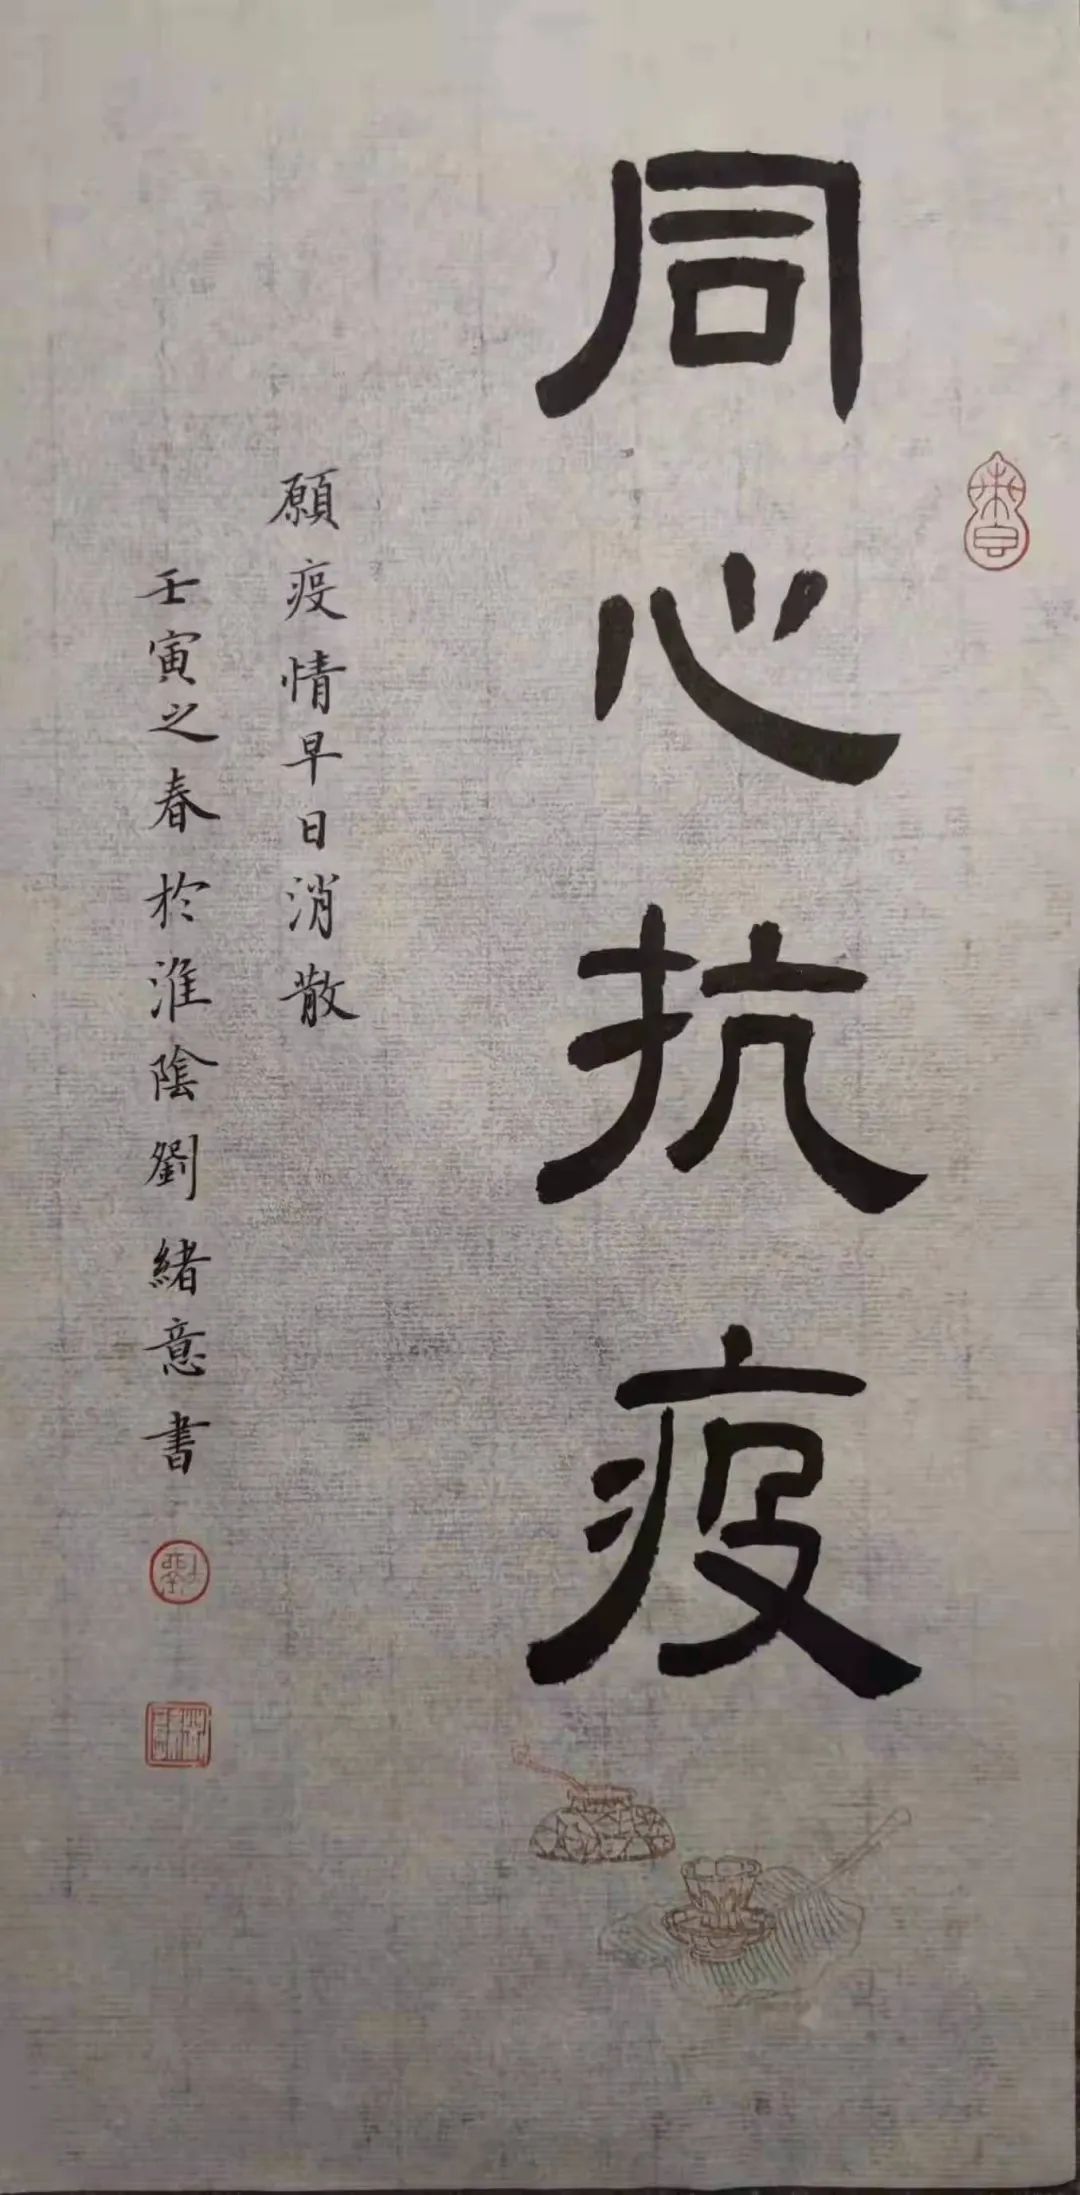 同心抗疫
願疫情早日消散
壬寅之春於淮陰劉緒意書